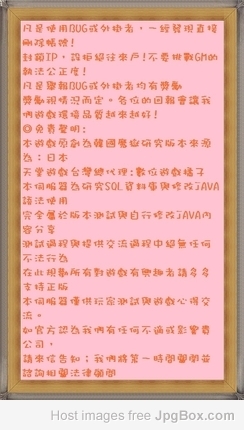 凡是使用BUG或外掛者,一經發現直接
刪除帳號!
封鎖IP,設拒絕往來戶!不要挑戰GM的
執法公正度!
凡是舉報BUG或外掛者均有獎勵
獎勵視情況而定。各位的回報會讓我
們遊戲環境品質越來越好!
◎免責聲明:
本遊戲原創為韓國 研究版本來源
為:日本
天堂遊戲台灣總代理:數位遊戲橘子
本伺服器為研究SQL資料庫與修改JAVA
語法使用
完全屬於版本測試與自行修改JAVA內
容分享
測試過程與提供交流過程中絕無任何
不法行為
在此規勸所有對遊戲有興趣者請多多
支持正版
本伺服器僅供玩家測試與遊戲心得交
流。
如官方認為我們有任何不適或影響貴
公司,
請來信告知;我們將第一時間關閉並
諮詢相關法律顧問
Host images free JpgBox.com